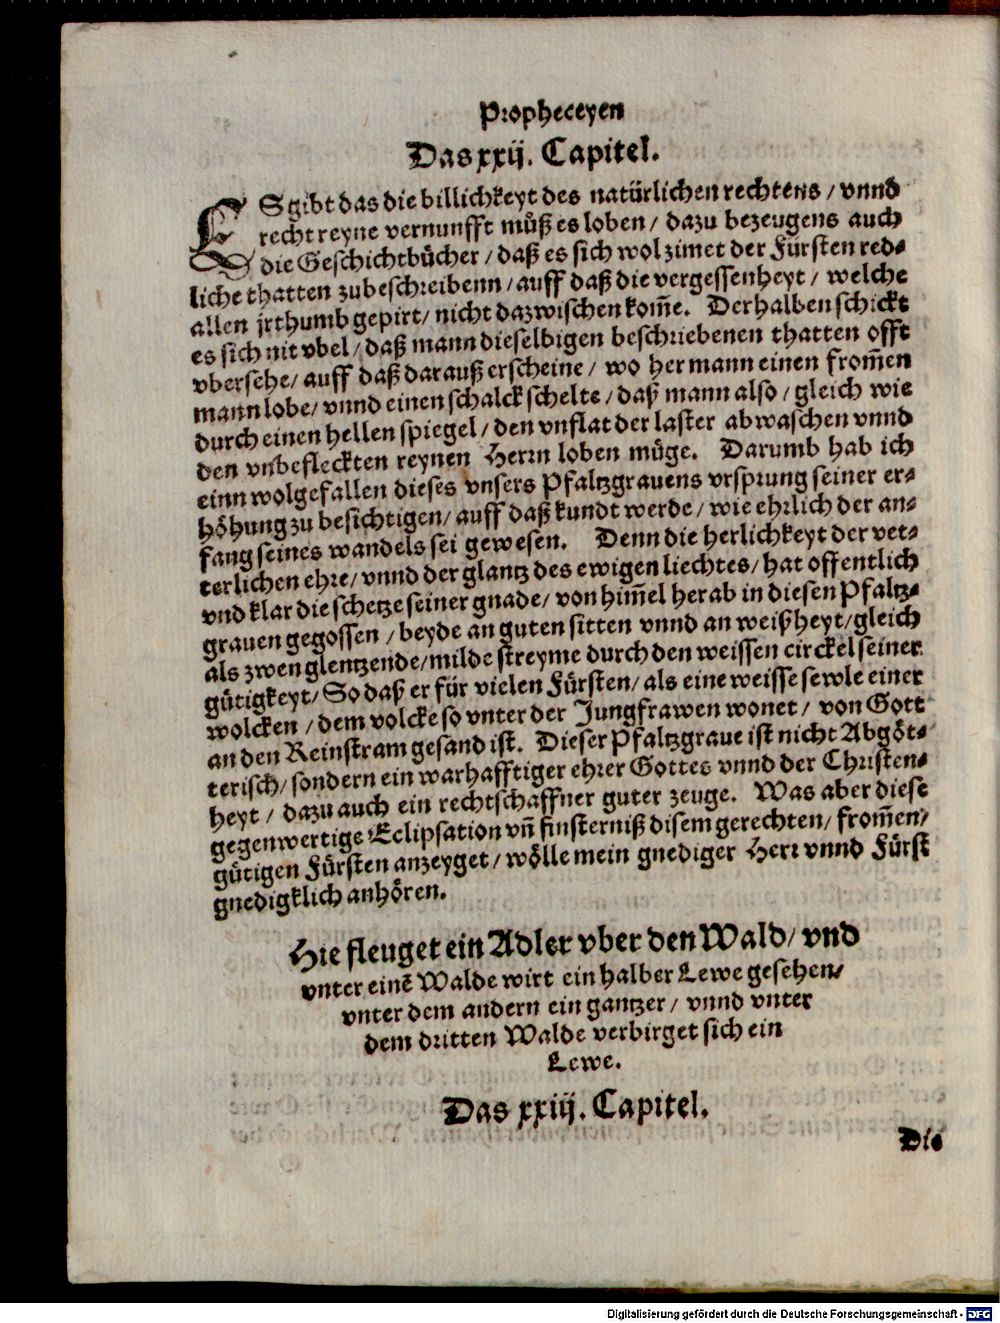 Propheceyen
Das xxij. Capitel.
ES gibt das die billichkeyt des natürlichen rechtens / vnnd
recht reyne vernunfft müß es loben / dazu bezeugens auch
die Geschichtbücher / daß es sich wol zimet der Fürsten red-
liche thatten zubeschreibenn / auff daß die vergessenheyt / welche
allen jrthumb gepirt / nicht dazwischen kom̄e. Derhalben schickt
es sich nit vbel / daß mann dieselbigen beschriebenen thatten offt
vbersehe / auff daß darauß erscheine / wo her mann einen from̄en
mann lobe / vnnd einen schalck schelte / daß mann also / gleich wie
durch einen hellen spiegel / den vnflat der laster abwaschen vnnd
den vnbefleckten reynen Herrn loben müge. Darumb hab ich
einn wolgefallen dieses vnsers Pfaltzgrauens vrsprung seiner er-
höhung zu besichtigen / auff daß kundt werde / wie ehrlich der an-
fang seines wandels sei gewesen. Denn die herlichkeyt der vet-
terlichen ehre / vnnd der glantz des ewigen liechtes / hat offentlich
vnd klar die schetze seiner gnade / von him̄el herab in diesen Pfaltz-
grauen gegossen / beyde an guten sitten vnnd an weißheyt / gleich
als zwen glentzende / milde streyme durch den weissen circkel seiner
gütigkeyt / So daß er für vielen Fürsten / als eine weisse sewle einer
wolcken / dem volcke so vnter der Jungfrawen wonet / von Gott
an den Reinstram gesand ist. Dieser Pfaltzgraue ist nicht Abgöt-
terisch / sondern ein warhafftiger ehrer Gottes vnnd der Christen-
heyt / dazu auch ein rechtschaffner guter zeuge. Was aber diese
gegenwertige Eclipsation vn̄ finsterniß disem gerechten / from̄en /
gütigen Fürsten anzeyget / wölle mein gnediger Herr vnnd Fürst
gnedigklich anhören.
Hie fleuget ein Adler vber den Wald / vnd
vnter einē Walde wirt ein halber Lewe gesehen /
vnter dem andern ein gantzer / vnnd vnter
dem dritten Walde verbirget sich ein
Lewe.
Das xxiij. Capitel.
Die
Digitalisierung gefördert durch die Deutsche Forschungsgemeinschaft - DFG